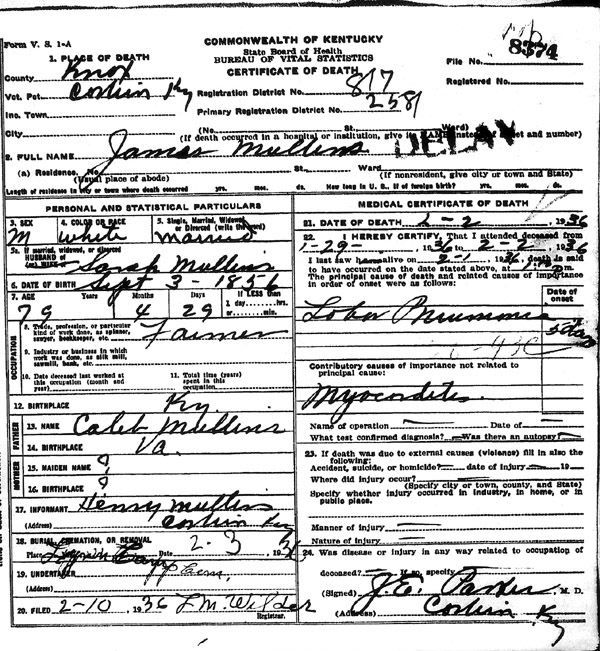 Form V. S. 1-A
COMMONWEALTH OF KENTUCKY
State Board of Health
BUREAU OF VITAL STATISTICS
CERTIFICATE OF DEATH
File No. 8374
Registered No.
1. PLACE OF DEATH
County Knox
Vot. Pct. Corbin Ky
Registration District No. 817
Inc. Town
Primary Registration District No. 2581
City (No. St. Ward)
(If death occurred in a hospital or institution, give its NAME instead of street and number)
DELAY
2. FULL NAME James Mullins
(a) Residence. No. St. Ward
(Usual place of abode) (If nonresident, give city or town and State)
Length of residence in city or town where death occurred yrs. mos. ds. How long in U. S., if of foreign birth? yrs. mos. ds.
PERSONAL AND STATISTICAL PARTICULARS
3. SEX 4. COLOR OR RACE 5. Single, Married, Widowed or Divorced (write the word)
M White Married
5a. If married, widowed, or divorced
HUSBAND of
(or) WIFE Sarah Mullins
6. DATE OF BIRTH Sept 3 - 1856
7. AGE Years Months Days If LESS than
1 day hrs.
or min.
79 4 29
OCCUPATION
8. Trade, profession, or particular kind of work done, as spinner, sawyer, bookkeeper, etc. Farmer
9. Industry or business in which work was done, as silk mill, sawmill, bank, etc.
10. Date deceased last worked at this occupation (month and year)
11. Total time (years) spent in this occupation
12. BIRTHPLACE Ky.
FATHER
13. NAME Caleb Mullins
14. BIRTHPLACE Va.
MOTHER
15. MAIDEN NAME ?
16. BIRTHPLACE ?
17. INFORMANT Henry Mullins
(Address) Corbin Ky
18. BURIAL, CREMATION, OR REMOVAL
Place Date 2-3 1936
19. UNDERTAKER
(Address)
20. FILED 2-10, 1936 L.M. Wilder
Registrar.
MEDICAL CERTIFICATE OF DEATH
21. DATE OF DEATH 2-2 1936
22. I HEREBY CERTIFY, That I attended deceased from
1-29- 1936 to 2-2- 1936
I last saw h alive on 2-1 1936, death is said
to have occurred on the date stated above, at m.
The principal cause of death and related causes of importance in order of onset were as follows:
Date of onset
Lobar Pneumonia
5 da
Contributory causes of importance not related to principal cause:
Myocarditis
Name of operation Date of
What test confirmed diagnosis? Was there an autopsy?
23. If death was due to external causes (violence) fill in also the following:
Accident, suicide, or homicide? date of injury 19
Where did injury occur?
(Specify city or town, county, and State)
Specify whether injury occurred in industry, in home, or in public place.
Manner of injury
Nature of injury
24. Was disease or injury in any way related to occupation of
deceased? If so, specify
(Signed) J.E. Parker M. D.
(Address) Corbin Ky